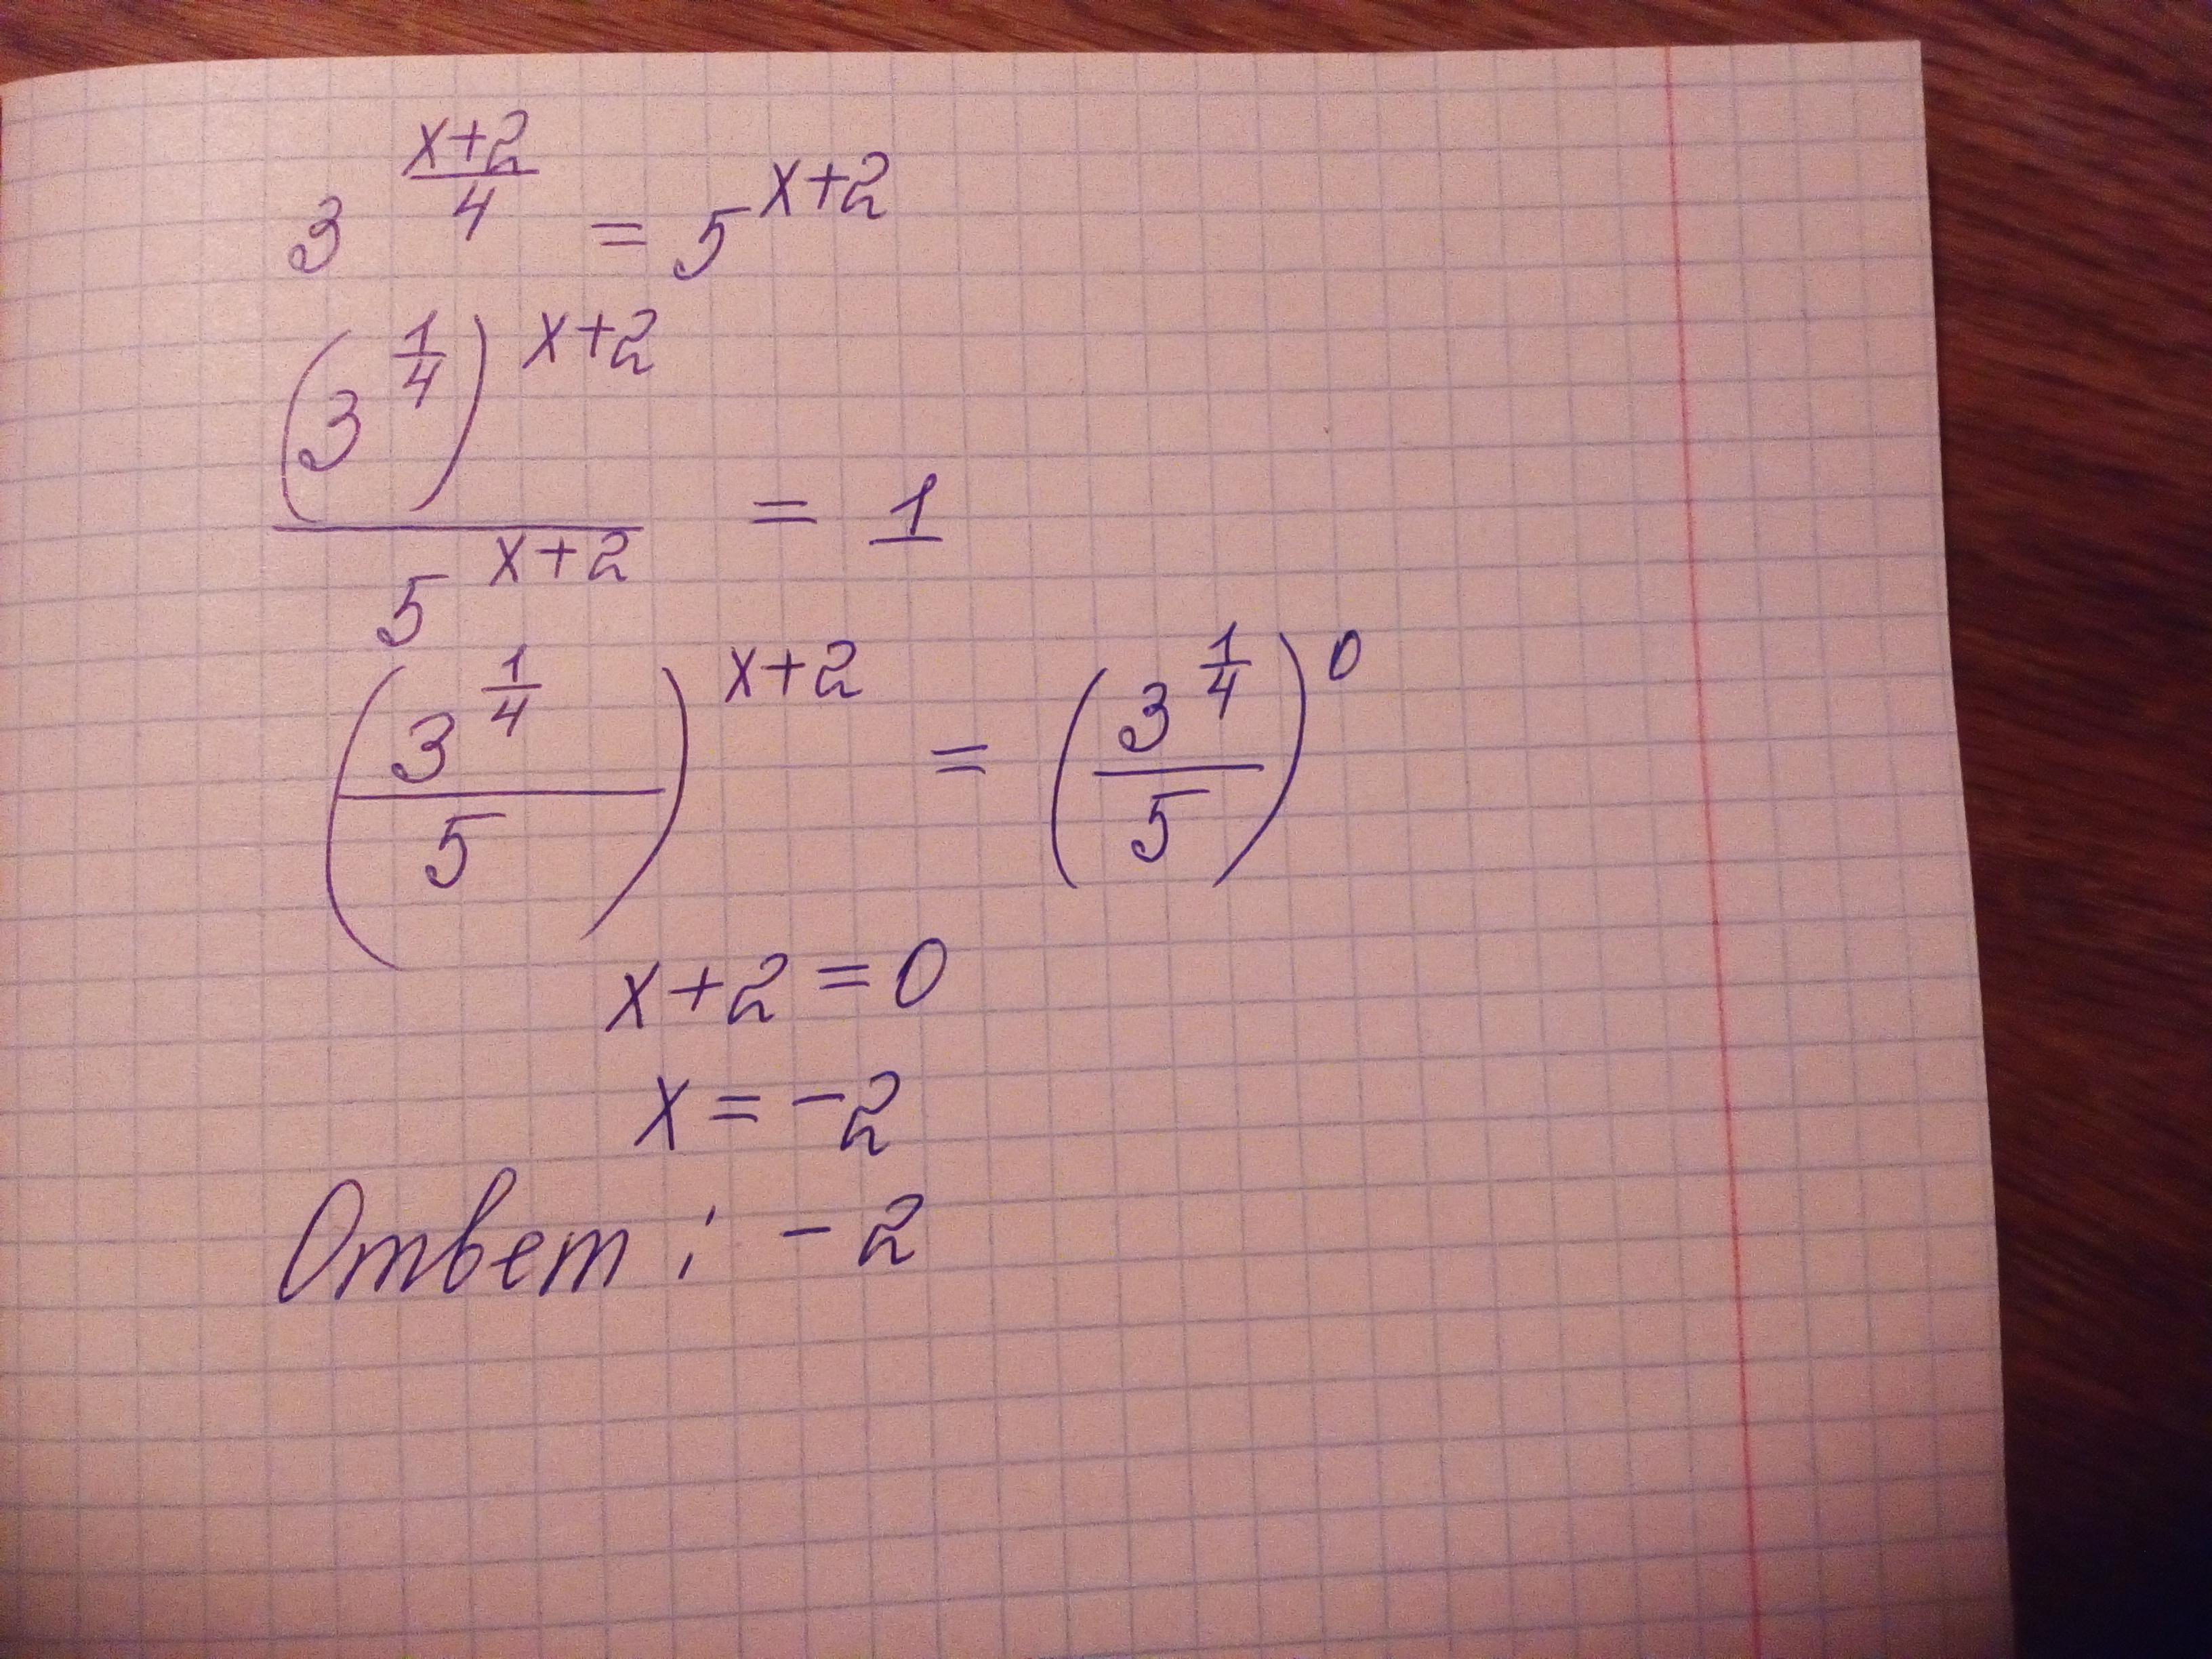 3^{\frac{x+2}{4}} = 5^{x+2}
\frac{(3^{\frac{1}{4}})^{x+2}}{5^{x+2}} = 1
(\frac{3^{\frac{1}{4}}}{5})^{x+2} = (\frac{3^{\frac{1}{4}}}{5})^0
x+2=0
x=-2
Ответ: -2